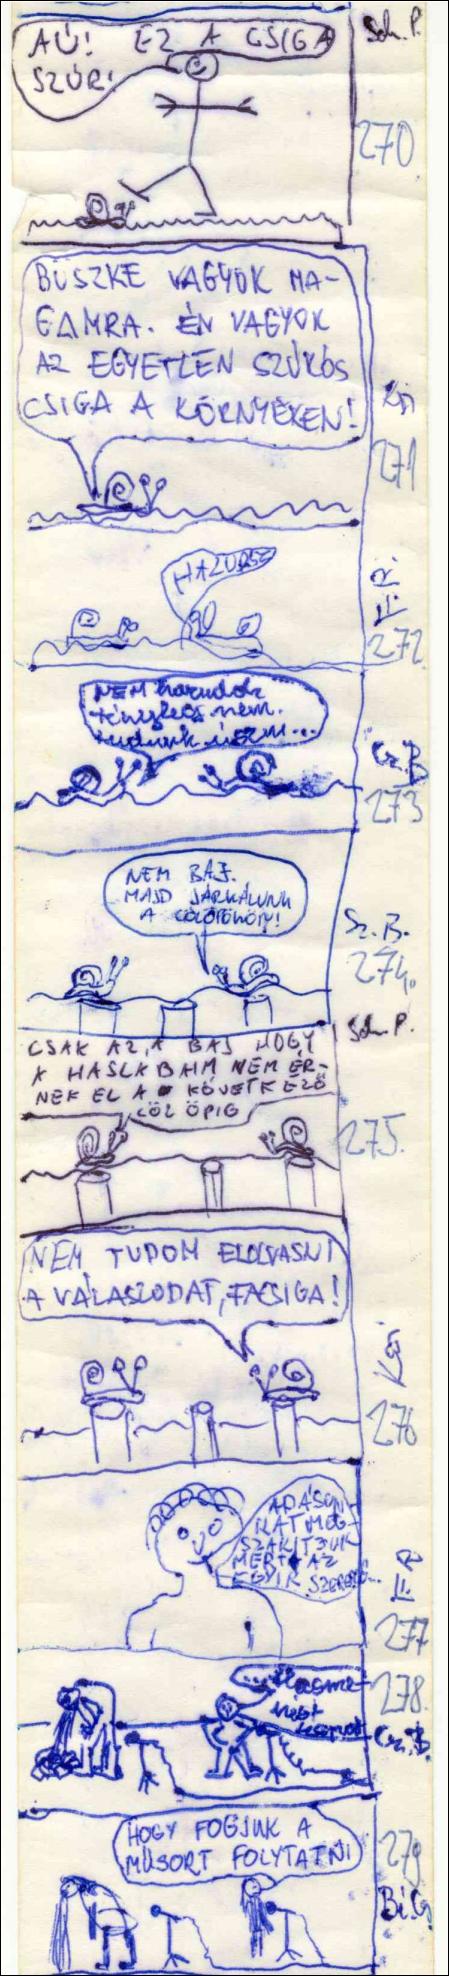 AÚ! EZ A CSIGA
SZÚR!
Sch. P.
270
BÜSZKE VAGYOK MA-
GAMRA. ÉN VAGYOK
AZ EGYETLEN SZÚRÓS
CSIGA A KÖRNYÉKEN!
271
HAZUDSZ
F. R.
272
NEM hazudok
tényleg nem.
tudunk úszni...
Cz. B
273
NEM BAJ.
MAJD JÁRKÁLUNK
A CÖLÖPÖKÖN!
Sz. B.
274.
Sch. P.
CSAK AZ A BAJ HOGY
A HASLÁBAIM NEM ÉR-
NEK EL A KÖVETKEZŐ
CÖLÖPIG
275.
NEM TUDOM ELOLVASNI
A VÁLASZODAT, FACSIGA!
276
ADÁSUN-
KAT MEG-
SZAKÍTJUK
MERT AZ
EGYIK SZEREP...
F. R
277
278.
Cz. B.
HOGY FOGJUK A
MŰSORT FOLYTATNI
279
Bi. G.